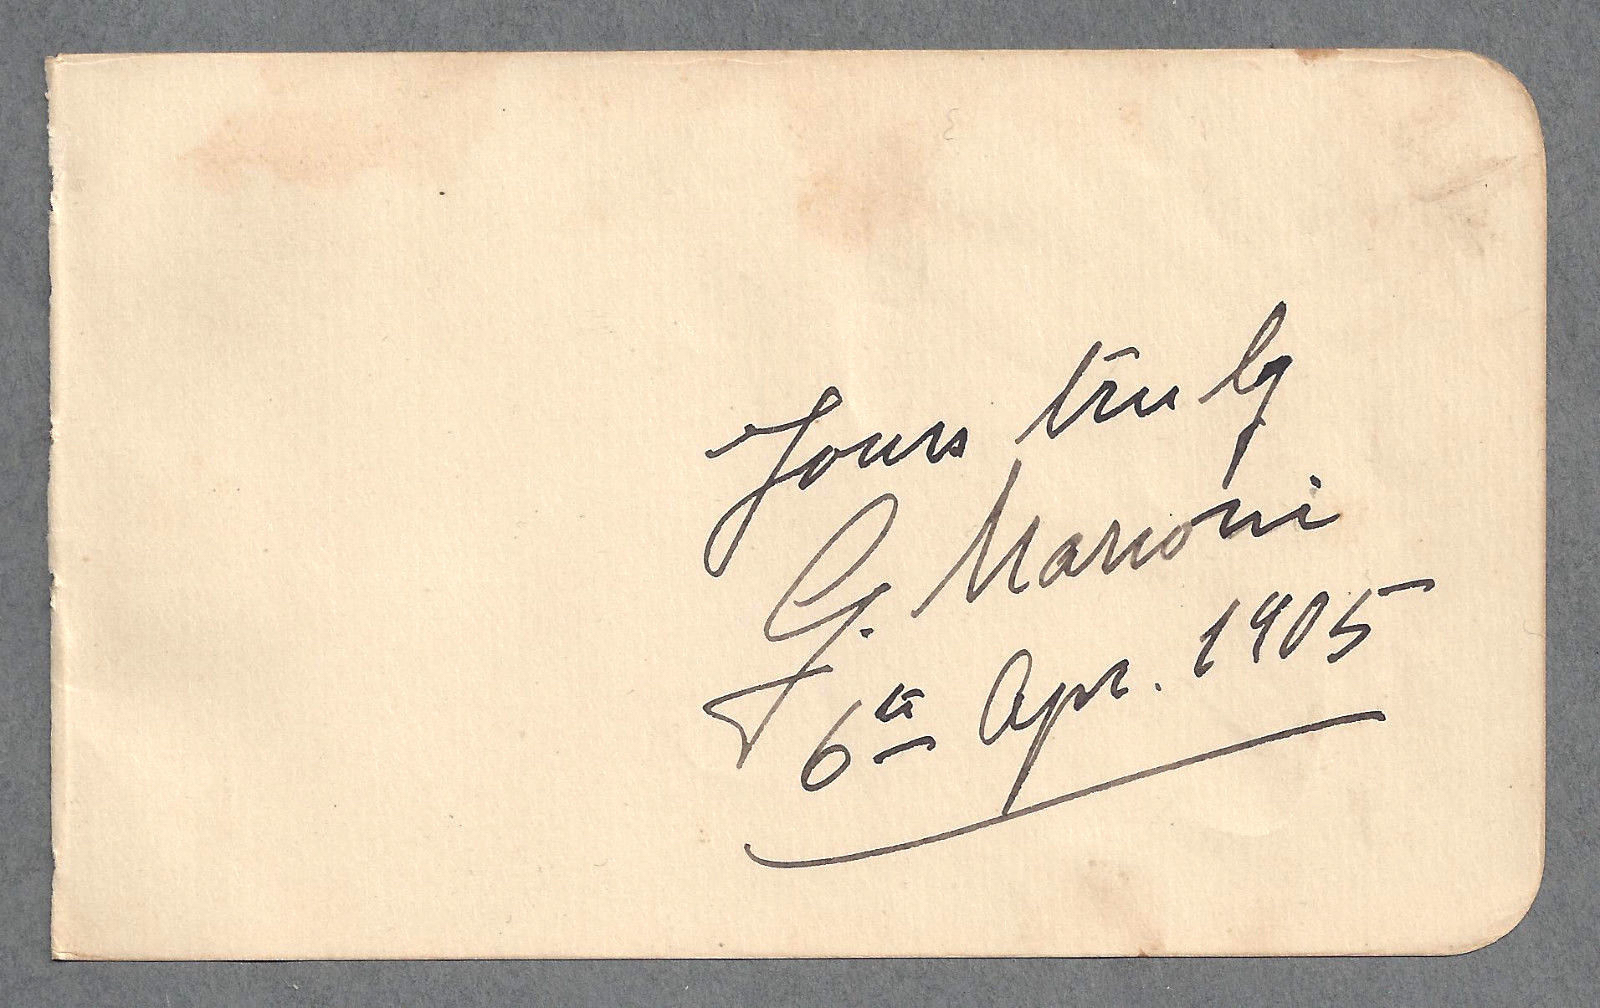 Yours truly
G. Marconi
6th Apr. 1905